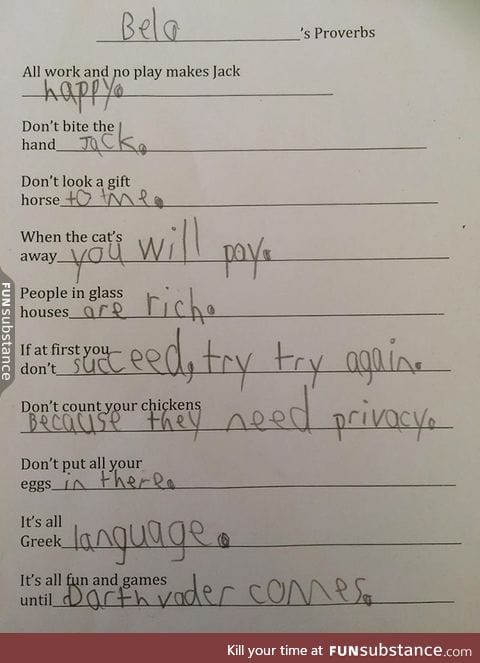 Bela 's Proverbs
All work and no play makes Jack
happy.
Don't bite the
hand Jack.
Don't look a gift
horse to me.
When the cat's
away you will pay.
People in glass
houses are rich.
If at first you
don't succeed, try try again.
Don't count your chickens
Because they need privacy.
Don't put all your
eggs in there.
It's all
Greek language.
It's all fun and games
until Darth vader comes.
FUNsubstance
Kill your time at FUNsubstance.com